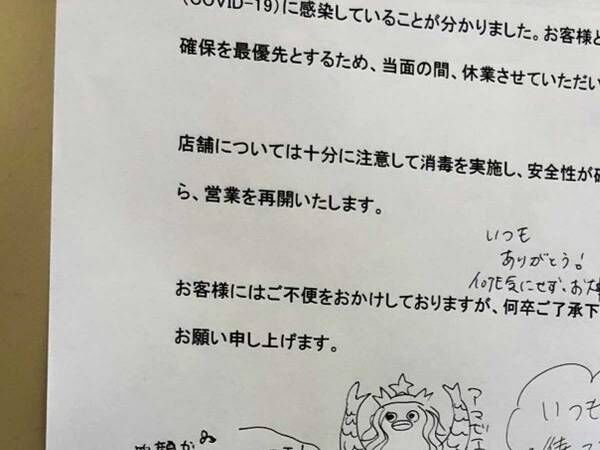 (COVID-19)に感染していることが分かりました。お客様と
確保を最優先とするため、当面の間、休業させていただい
店舗については十分に注意して消毒を実施し、安全性が確
ら、営業を再開いたします。
いつも
ありがとう!
何も気にせず、お大
お客様にはご不便をおかけしておりますが、何卒ご了承下
お願い申し上げます。
アマビエ
いつも
笑顔が